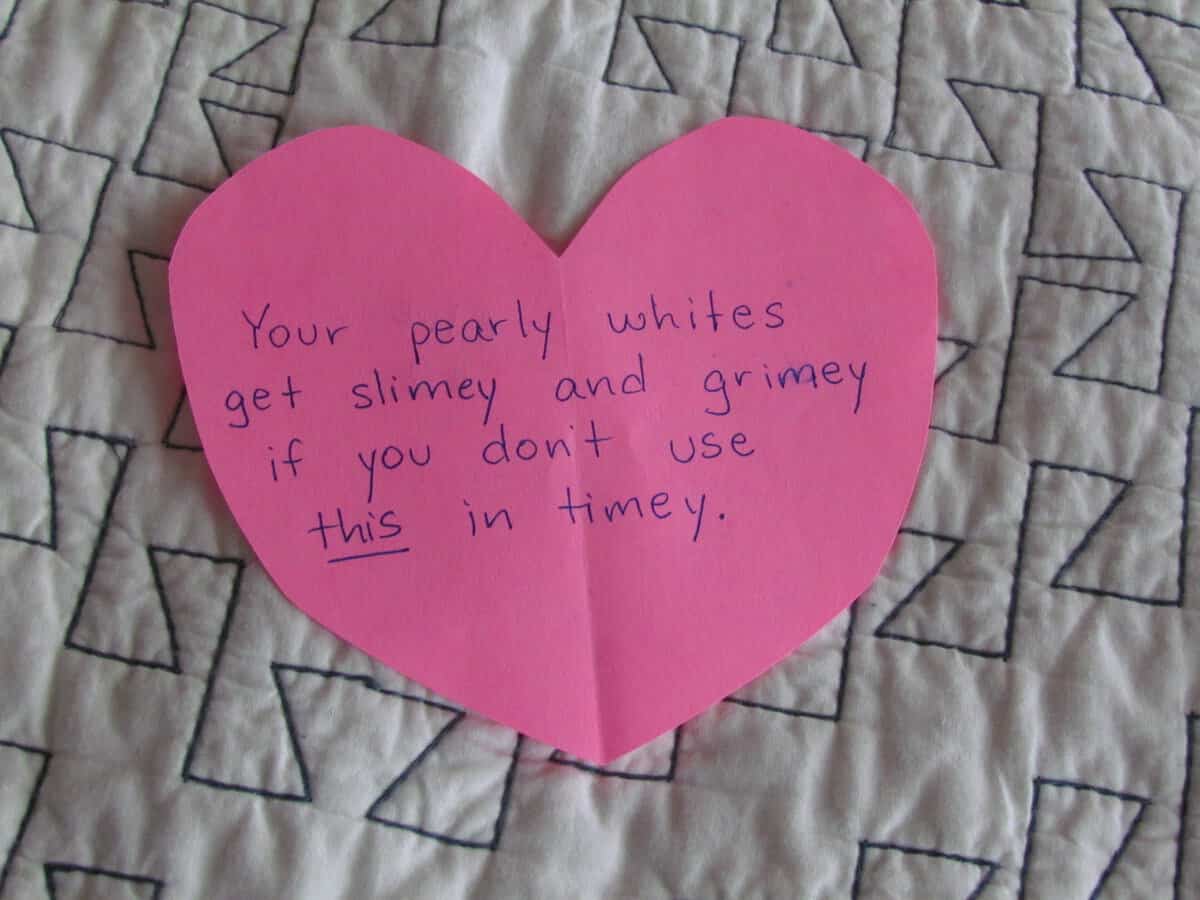 Your pearly whites
get slimey and grimey
if you don't use
this in timey.